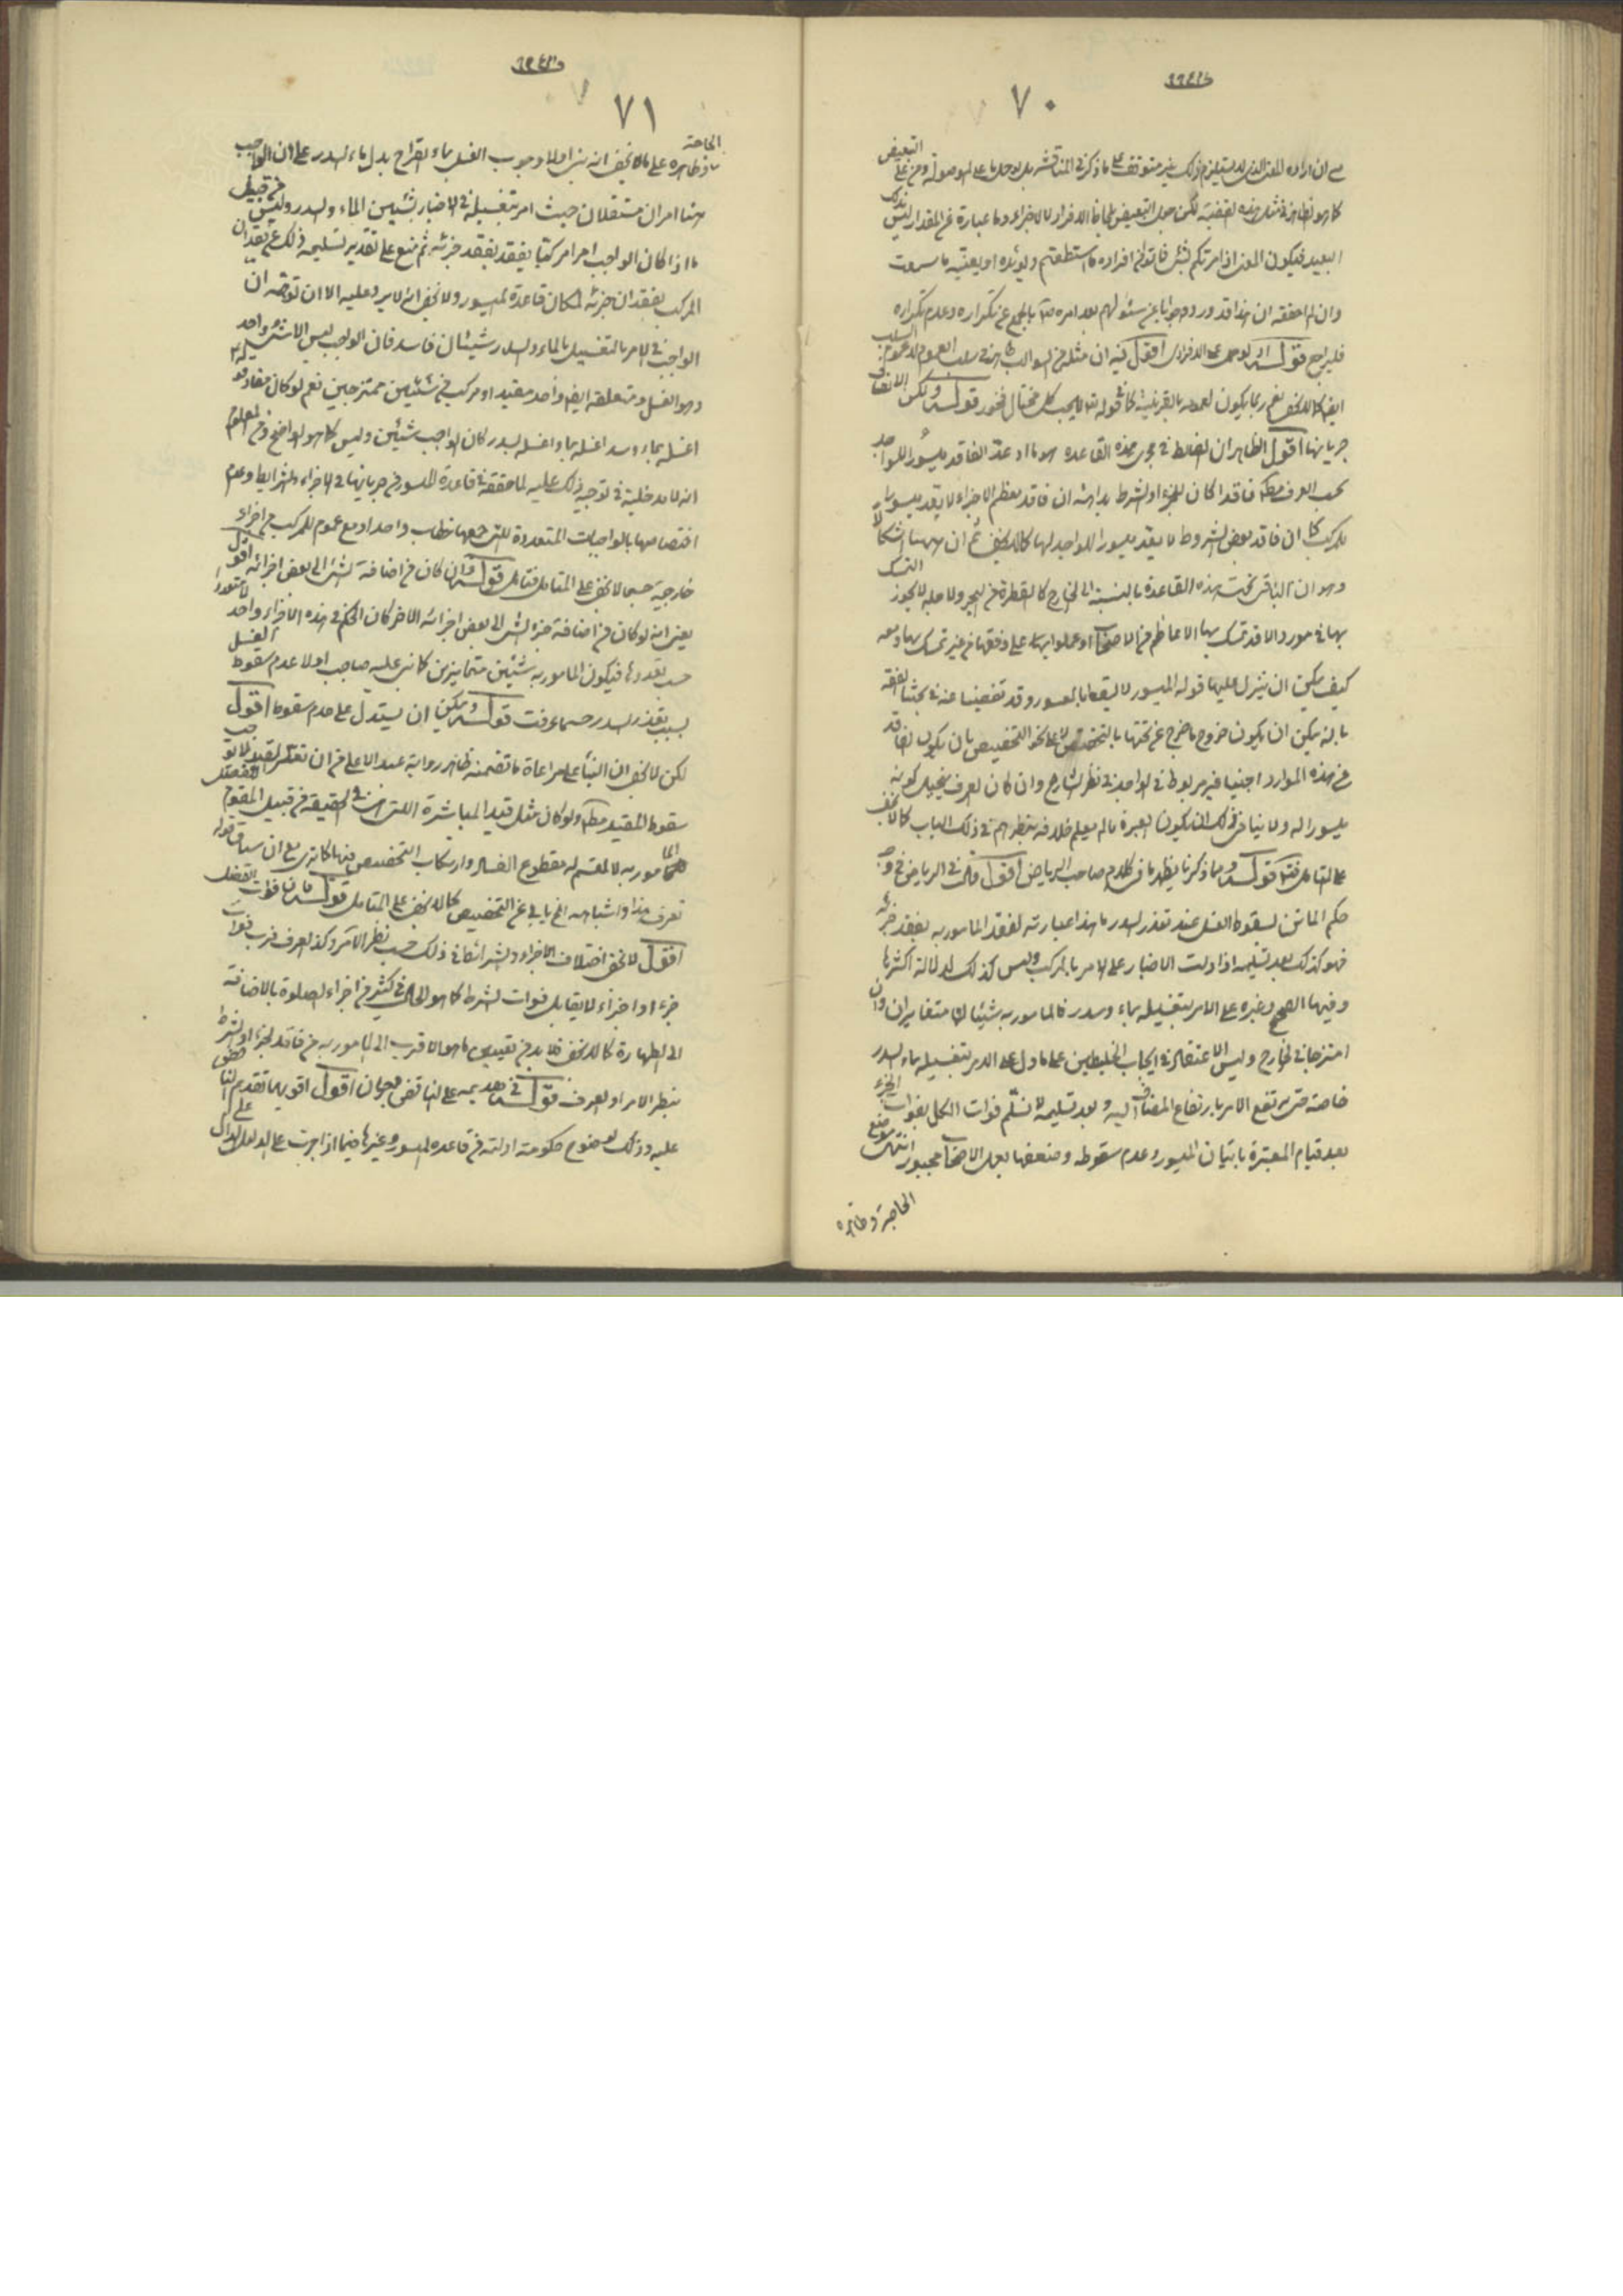 ٧٠
كما هو الظاهر في مثل هذه القضية لكن جعل التبعيض بلحاظ الافراد لا الاجزاء وما عبارة عن المقدار ليس بذلك
البعيد فيكون المعنى اذا امرتكم بشئ فاتوا من افراده ما استطعتم ويؤيده او يعينه ما سمعت
فليراجع قوله اقول فيه ان مثله في السوالب ظاهر في سلب العموم لا عموم السلب
ايضا كما لا يخفى نعم ربما يكون لعمومه بالقرينة كما في قوله تع لا يحب كل مختال فخور قوله ولكن الانصاف
جريانها اقول الظاهر ان الضابط في مجرى هذه القاعدة هو ما اذا عد الفاقد ميسورا للواجد
بحسب العرف مطلقا فاقدا كان للجزء او الشرط بداهة ان فاقد معظم الاجزاء لا يعد ميسورا
للمركب كما ان فاقد بعض الشروط لا يعد ميسورا للواجد لها كما لا يخفى ثم ان ههنا اشكالا
وهو ان الباقى تحت هذه القاعدة بالنسبة الى الخارج كالقطرة من البحر ولاجله لا يجوز التمسك
بها في مورد الا قد تمسك بها الاعاظم من الاصحاب او عملوا بها على وفقها من غير تمسك بها ومعه
كيف يمكن ان ينزل عليها قوله الميسور لا يسقط بالمعسور وقد تفصينا عنه في بحثنا الفقه
بانه يمكن ان يكون خروج ما خرج عن تحتها بالتخصص لا على نحو التخصيص بان يكون الفاقد
في هذه الموارد اجنبيا غير مربوط في الواجد في نظر الشارع وان كان العرف يتخيل كونه
ميسورا له ولا ينافي ذلك ان يكون العبرة ما لم يعلم خلافه بنظرهم في ذلك الباب كما لا يخفى
على المتامل قوله ومما ذكرنا يظهر ما في كلام صاحب الرياض اقول قال في الرياض في وجه
حكم الماتن لسقوط الغسل عند تعذر السدر ما هذا عبارته لفقد المامور به بفقد جزئه
فهو كذلك بعد تسليمه اذا دلت الاخبار على الامر بالمركب وليس كذلك لدلالة اكثرها
وفيها الصحيح وغيره على الامر بتغسيله بماء وسدر فالمامور به شيئان متغايران وان
امتزجا في الخارج وليس الاعتقاد في ايجاب الخليطين على ما دل على الامر بتغسيله بماء السدر
خاصة حتى يرتفع الامر بارتفاع المضاف اليه وبعد تسليمه لا نسلم فوات الكل بفوات الجزء
بعد قيام المعتبرة باتيان الميسور وعدم سقوطه وضعفها بعمل الاصحاب مجبور انتهى موضع
الحاجة وظاهره
٧١
الحاجة
وظاهره على ما لا يخفى انه بنى اولا وجوب الغسل بماء القراح بدل ماء السدر على ان الواجب
هنا امران مستقلان حيث امر بتغسيله في الاخبار بشيئين الماء والسدر وليس من قبيل
ما اذا كان الواجب امرا مركبا يفقد بفقد جزئه ثم منع على تقدير تسليمه ذلك عن فقدان
المركب بفقدان جزئه لمكان قاعدة الميسور ولا يخفى انه لا يرد عليه الا ان توهم ان
الواجب في الامر بالتغسيل بالماء والسدر شيئان فاسد فان الواجب ليس الا شئ واحد
وهو الغسل ومتعلقه ايضا واحد مقيد او مركب من شيئين ممتزجين نعم لو كان مفاد قوله
اغسله بماء وسدر اغسله بماء واغسله بسدر كان الواجب شيئين وليس كما هو الواضح ومن المعلوم
انه لا مدخلية في توجيه ذلك عليه لما حققه في قاعدة الميسور من جريانها في الاجزاء والشرايط وعدم
اختصاصها بالواجبات المتعددة التى جمعها خطاب واحد او مع عموم للمركب من اجزاء
خارجية حسبما لا يخفى على المتامل فتامل قوله وان كان من اضافة الشئ الى بعض اجزائه اقول
يعنى انه لو كان من اضافة جزء الشئ الى بعض اجزائه الاخر كان الحكم في هذه الاجزاء واحد لا متعددا
حسب تعددها فيكون المامور به شيئين متمايزين كما بنى عليه صاحب اولا عدم سقوط الغسل
بسبب تعذر السدر حسبما عرفت قوله ويمكن ان يستدل على عدم سقوط اقول
لكن لا يخفى ان البناء على مراعاة ما تضمنه ظاهر رواية عبد الاعلى من ان تعذر القيد لا يوجب
سقوط المقيد مطلقا ولو كان مثل قيد المباشرة التى هى في الحقيقة من قبيل المقوم
للمامور به لا المقسم له مقطوع الفساد وارتكاب التخصيص فيها كما ترى مع ان سياق قوله
تعرف هذا واشباهه الخ ياب عن التخصيص كما لا يخفى على المتامل قوله فان فوات
اقول لا يخفى اختلاف الاجزاء والشرائط في ذلك حسب نظر الامر وكذا العرف فرب فوات
جزء او اجزاء لا يقابل فوات الشرط كما هو الحال في كثير من اجزاء الصلوة بالاضافة
الى الطهارة كما لا يخفى فلا بد من تعيين ما هو الاقرب الى المامور به من فاقد الجزء او الشرط
بنظر الامر او العرف قوله في تقديمه على الناقص وجهان اقول اقويهما تقديم
عليه وذلك لوضوح حكومة ادلته من قاعدة الميسور وغيرها